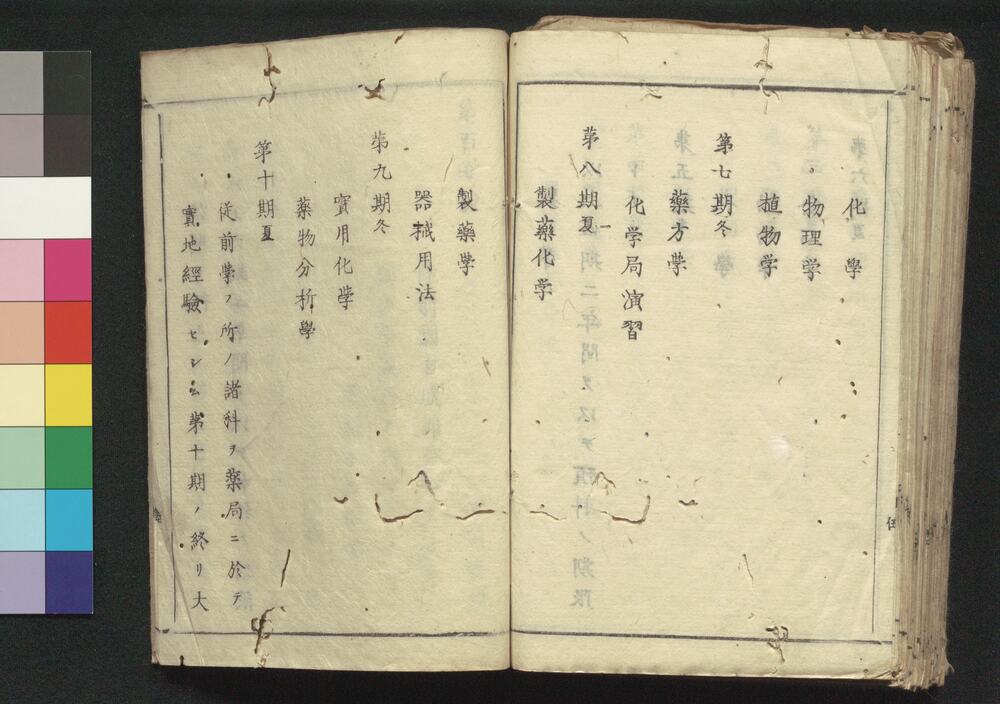 化學
物理学
植物学
第七期冬
藥方学
化学局演習
第八期夏
製藥化学
製藥学
器械用法
第九期冬
實用化学
藥物分析學
第十期夏
従前学ノ所ノ諸科ヲ藥局ニ於テ
實地經驗セシム第十期ノ終リ大